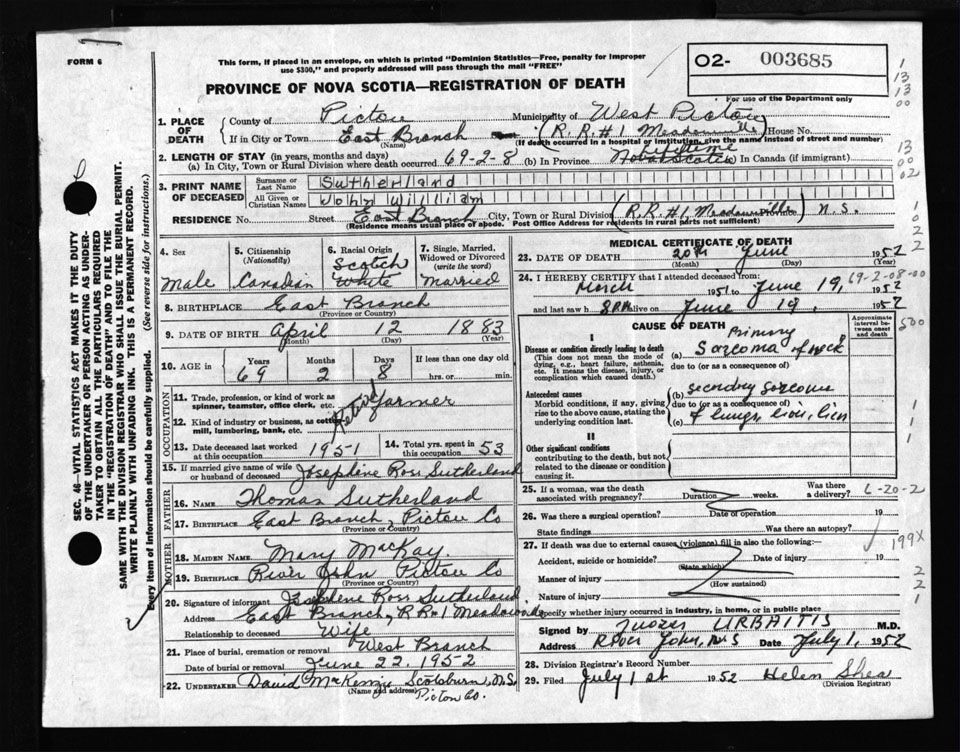 FORM 6
This form, if placed in an envelope, on which is printed "Dominion Statistics—Free, penalty for improper
use $300," and properly addressed will pass through the mail "FREE"
O2- 003685
PROVINCE OF NOVA SCOTIA—REGISTRATION OF DEATH
For use of the Department only
1. PLACE OF DEATH County of Pictou Municipality of West Pictou
If in City or Town East Branch (R.R.#1 Meadowville) House No.
(Name) (If death occurred in a hospital or institution, give the name instead of street and number)
2. LENGTH OF STAY (in years, months and days) Lifetime
(a) In City, Town or Rural Division where death occurred 69-2-8 (b) In Province Nova Scotia In Canada (if immigrant)
3. PRINT NAME OF DECEASED Surname or Last Name Sutherland
All Given or Christian Names John William
RESIDENCE No. Street East Branch City, Town or Rural Division (R.R.#1, Meadowville) Province N.S.
(Residence means usual place of abode. Post Office Address for residents in rural parts not sufficient)
4. Sex Male
5. Citizenship (Nationality) Canadian
6. Racial Origin Scotch White
7. Single, Married, Widowed or Divorced (write the word) Married
8. BIRTHPLACE East Branch
(Province or Country)
9. DATE OF BIRTH April 12 1883
(Month) (Day) (Year)
10. AGE in Years 69 Months 2 Days 8 If less than one day old hrs. or min.
OCCUPATION
11. Trade, profession, or kind of work as spinner, teamster, office clerk, etc. Farmer
12. Kind of industry or business, as cotton-mill, lumbering, bank, etc.
13. Date deceased last worked at this occupation 1951
14. Total yrs. spent in this occupation 53
15. If married give name of wife or husband of deceased Josephine Ross Sutherland
FATHER
16. NAME Thomas Sutherland
17. BIRTHPLACE East Branch, Pictou Co
(Province or Country)
MOTHER
18. MAIDEN NAME Mary MacKay.
19. BIRTHPLACE River John Pictou Co
(Province or Country)
20. Signature of informant Josephene Ross Sutherland
Address East Branch, R.R.1 Meadowville
Relationship to deceased Wife
21. Place of burial, cremation or removal West Branch
Date of burial or removal June 22, 1952
22. UNDERTAKER David MacKenzie Scotsburn, N.S.
(Name and address) Pictou Co.
MEDICAL CERTIFICATE OF DEATH
23. DATE OF DEATH 20th June 1952
(Month) (Day) (Year)
24. I HEREBY CERTIFY that I attended deceased from:
March 1951 to June 19, 1952
69-2-08-00
and last saw h alive on June 19. 1952
CAUSE OF DEATH
Approximate interval between onset and death
I
Disease or condition directly leading to death
(This does not mean the mode of dying, e.g., heart failure, asthenia, etc. It means the disease, injury, or complication which caused death.)
(a) Primary Sarcoma of neck
due to (or as a consequence of)
Antecedent causes
Morbid conditions, if any, giving rise to the above cause, stating the underlying condition last.
(b) secondry sarcoma
due to (or as a consequence of)
(c) of lungs
II
Other significant conditions
contributing to the death, but not related to the disease or condition causing it.
25. If a woman, was the death associated with pregnancy? Duration weeks. Was there a delivery?
26. Was there a surgical operation? Date of operation 19
State findings Was there an autopsy?
27. If death was due to external causes (violence) fill in also the following:—
Accident, suicide or homicide? Date of injury 19
(State which)
Manner of injury
(How sustained)
Nature of injury
Specify whether injury occurred in industry, in home, or in public place
Signed by Juozas URBAITIS M.D.
Address River John, N.S Date July 1, 1952
28. Division Registrar's Record Number
29. Filed July 1st 1952 Helen Shea
(Division Registrar)
SEC. 46—VITAL STATISTICS ACT MAKES IT THE DUTY
OF THE UNDERTAKER OR PERSON ACTING AS UNDER-
TAKER TO OBTAIN ALL THE PARTICULARS REQUIRED
IN THE "REGISTRATION OF DEATH" AND TO FILE THE
SAME WITH THE DIVISION REGISTRAR WHO SHALL ISSUE THE BURIAL PERMIT.
WRITE PLAINLY WITH UNFADING INK. THIS IS A PERMANENT RECORD.
Every item of information should be carefully supplied. (See reverse side for instructions.)
1
13
13
00
13
00
02
500
199X